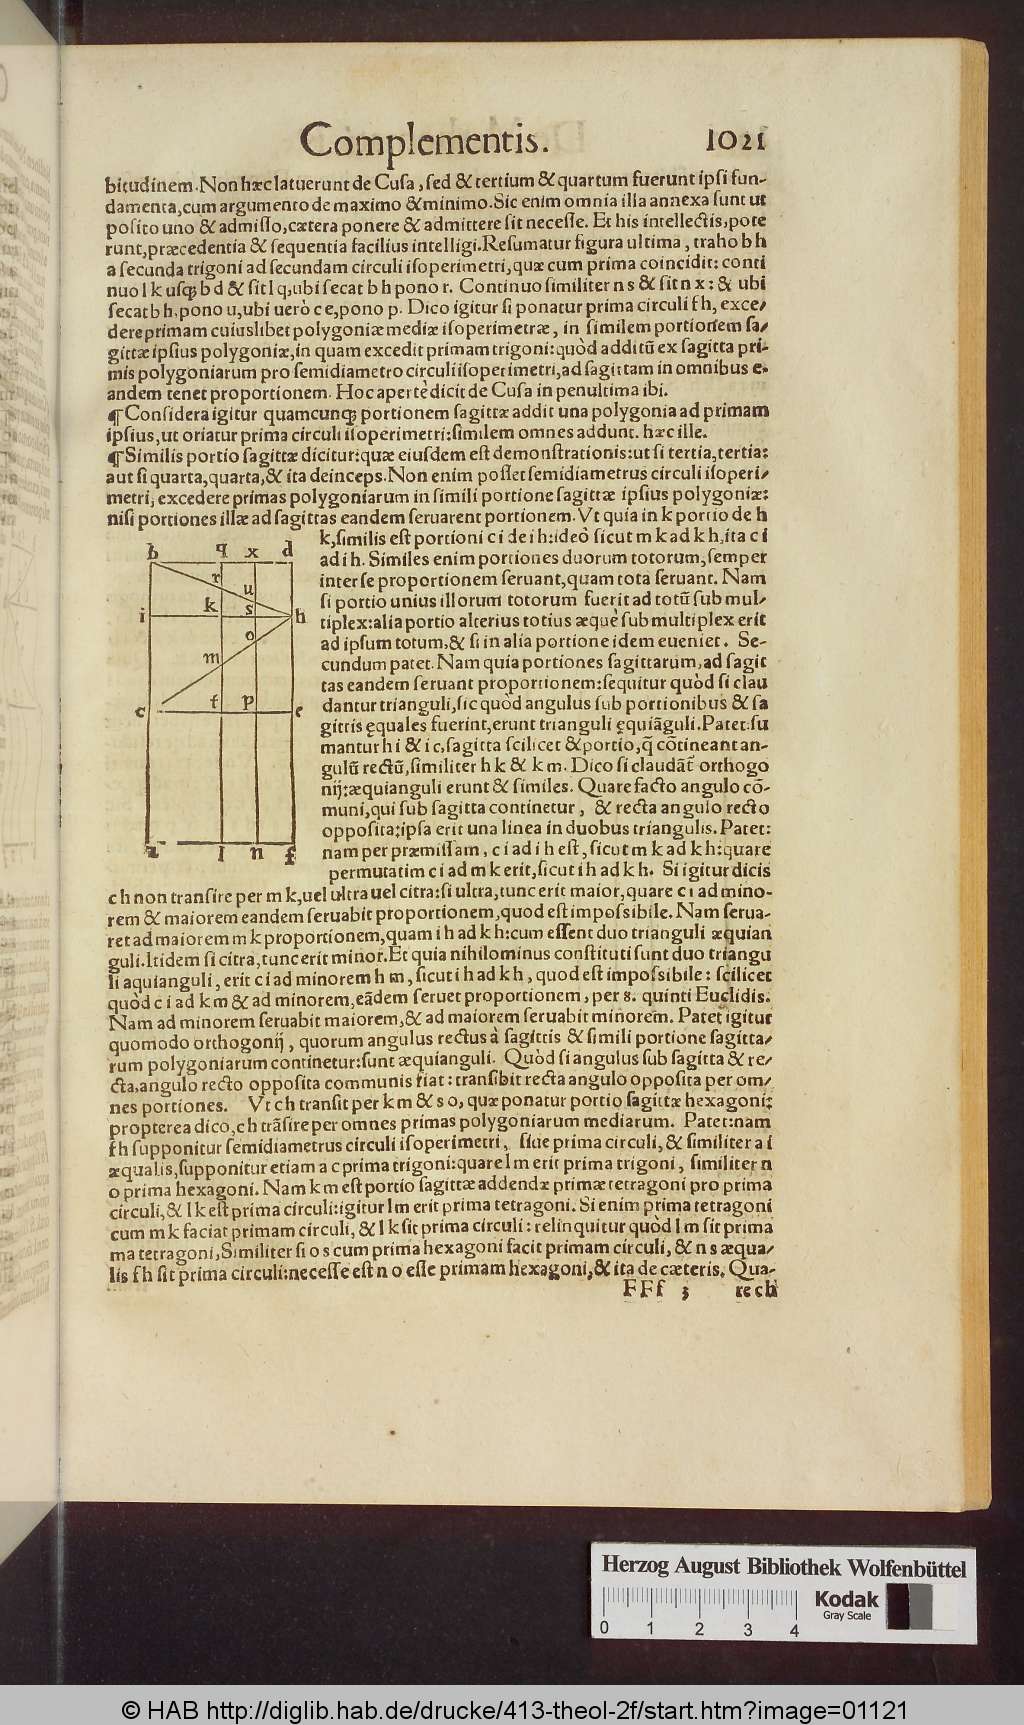 Complementis. 1021
bitudinem. Non hæc latuerunt de Cusa, sed & tertium & quartum fuerunt ipsi fun-
damenta, cum argumento de maximo & minimo. Sic enim omnia illa annexa sunt ut
posito uno & admisso, cætera ponere & admittere sit necesse. Et his intellectis, pote
runt, præcedentia & sequentia facilius intelligi. Resumatur figura ultima, traho b h
a secunda trigoni ad secundam circuli isoperimetri, quæ cum prima coincidit: conti
nuo l k usq; b d & sit l q, ubi secat b h pono r. Continuo similiter n s & sit n x: & ubi
secat b h, pono u, ubi uerò c e, pono p. Dico igitur si ponatur prima circuli f h, exce/
dere primam cuiuslibet polygoniæ mediæ isoperimetræ, in similem portionem sa/
gittæ ipsius polygoniæ, in quam excedit primam trigoni: quòd additũ ex sagitta pri-
mis polygoniarum pro semidiametro circuli isoperimetri, ad sagittam in omnibus e-
andem tenet proportionem. Hoc apertè dicit de Cusa in penultima ibi.
¶ Considera igitur quamcunq; portionem sagittæ addit una polygonia ad primam
ipsius, ut oriatur prima circuli isoperimetri: similem omnes addunt. hæc ille.
¶ Similis portio sagittæ dicitur: quæ eiusdem est demonstrationis: ut si tertia, tertia:
aut si quarta, quarta, & ita deinceps. Non enim posset semidiametrus circuli isoperi/
metri, excedere primas polygoniarum in simili portione sagittæ ipsius polygoniæ:
nisi portiones illæ ad sagittas eandem seruarent portionem. Vt quia in k portio de h
k, similis est portioni c i de i h: ideò sicut m k ad k h, ita c i
ad i h. Similes enim portiones duorum totorum, semper
inter se proportionem seruant, quam tota seruant. Nam
si portio unius illorum totorum fuerit ad totũ sub mul/
tiplex: alia portio alterius totius æquè sub multiplex erit
ad ipsum totum, & si in alia portione idem eueniet. Se-
cundum patet. Nam quia portiones sagittarum, ad sagit
tas eandem seruant proportionem: sequitur quòd si clau
dantur trianguli, sic quòd angulus sub portionibus & sa
gittis ęquales fuerint, erunt trianguli ęquiãguli. Patet: su
mantur h i & i c, sagitta scilicet & portio, q̃ cõtineant an-
gulũ rectũ, similiter h k & k m. Dico si claudãt̃ orthogo
nij: æquianguli erunt & similes. Quare facto angulo cõ-
muni, qui sub sagitta continetur, & recta angulo recto
opposita: ipsa erit una linea in duobus triangulis. Patet:
nam per præmissam, c i ad i h est, sicut m k ad k h: quare
permutatim c i ad m k erit, sicut i h ad k h. Si igitur dicis
c h non transire per m k, uel ultra uel citra: si ultra, tunc erit maior, quare c i ad mino-
rem & maiorem eandem seruabit proportionem, quod est impossibile. Nam serua-
ret ad maiorem m k proportionem, quam i h ad k h: cum essent duo trianguli æquian
guli. Itidem si citra, tunc erit minor. Et quia nihilominus constituti sunt duo triangu
li æquianguli, erit c i ad minorem h m, sicut i h ad k h, quod est impossibile: scilicet
quòd c i ad k m & ad minorem, eãdem seruet proportionem, per 8. quinti Euclidis.
Nam ad minorem seruabit maiorem, & ad maiorem seruabit minorem. Patet igitur
quomodo orthogonij, quorum angulus rectus à sagittis & simili portione sagitta/
rum polygoniarum continetur: sunt æquianguli. Quòd si angulus sub sagitta & re/
cta, angulo recto opposita communis fiat: transibit recta angulo opposita per om/
nes portiones. Vt c h transit per k m & s o, quæ ponatur portio sagittæ hexagoni:
propterea dico, c h trãsire per omnes primas polygoniarum mediarum. Patet: nam
f h supponitur semidiametrus circuli isoperimetri, siue prima circuli, & similiter a i
æqualis, supponitur etiam a c prima trigoni: quare l m erit prima trigoni, similiter n
o prima hexagoni. Nam k m est portio sagittæ addendæ primæ tetragoni pro prima
circuli, & l k est prima circuli: igitur l m erit prima tetragoni. Si enim prima tetragoni
cum m k faciat primam circuli, & l k sit prima circuli: relinquitur quòd l m sit prima
ma tetragoni, Similiter si o s cum prima hexagoni facit primam circuli, & n s æqua/
lis f h sit prima circuli: necesse est n o esse primam hexagoni, & ita de cæteris. Qua-
FFf 3 re ch
b q x d
r u
i k s h
o
m
c f p e
a l n f
Herzog August Bibliothek Wolfenbüttel
0 1 2 3 4
Kodak
Gray Scale
© HAB http://diglib.hab.de/drucke/413-theol-2f/start.htm?image=01121